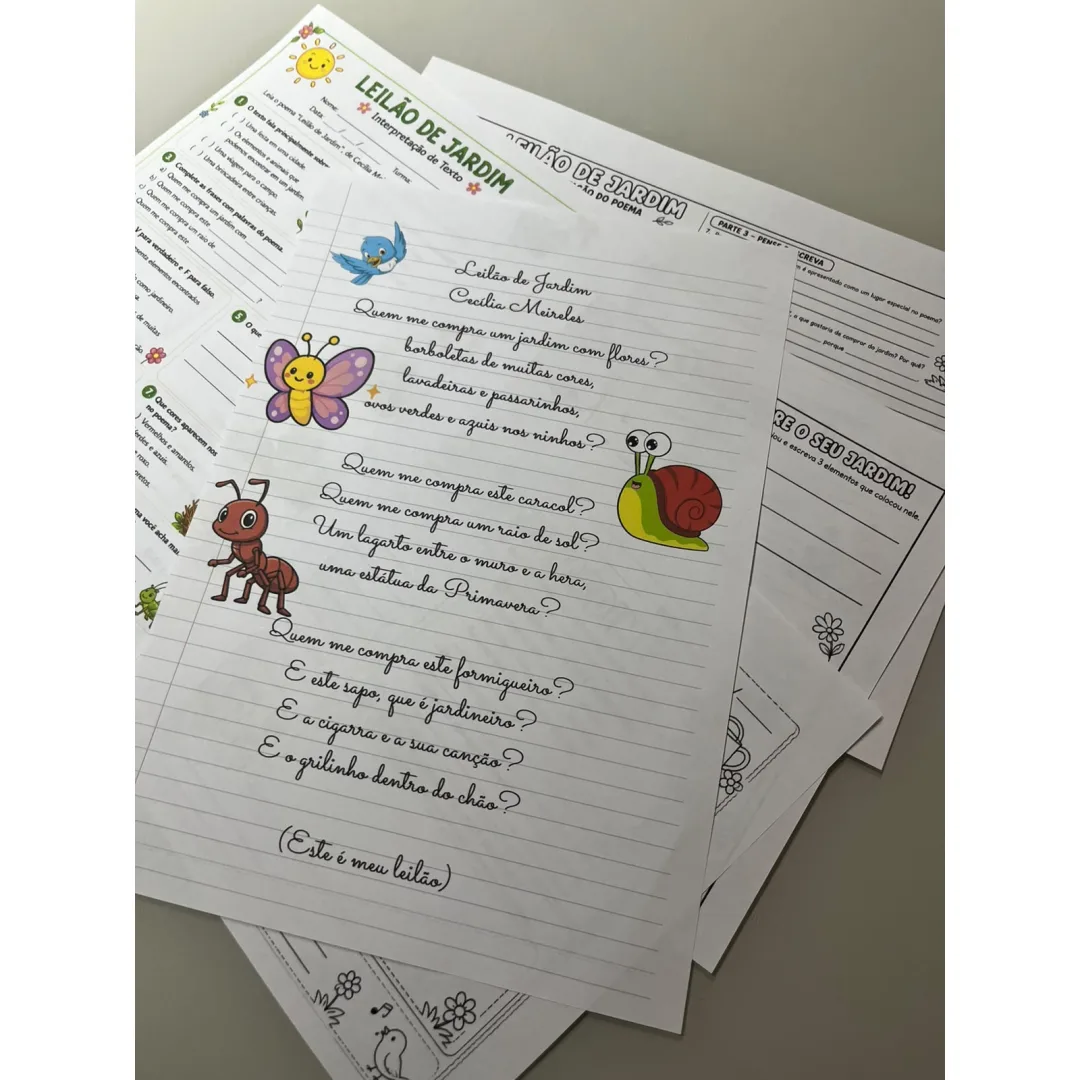 LEILÃO DE JARDIM
Interpretação de Texto
Nome:
Data: ___/___/___ Turma:
Leia o poema "Leilão de Jardim", de Cecília
1 O texto fala principalmente sobre:
( ) Uma festa em uma cidade.
( ) Os elementos e animais que
podemos encontrar em um jardim.
( ) Uma viagem para o campo.
( ) Uma brincadeira entre crianças.
Complete as frases com palavras do poema.
a) Quem me compra um jardim com
b) Quem me compra este
c) Quem me compra um raio de
Quem me compra este ?
V para verdadeiro e F para falso.
elementos encontrados
como jardineiro.
de muitas
5 O que
7 Que cores aparecem nos
no poema?
) Vermelhos e amarelos.
Verdes e azuis.
roxo.
você acha
LEILÃO DE JARDIM
DO POEMA
PARTE 3 – PENSE
ESCREVA
é apresentado como um lugar especial no poema?
o que gostaria de comprar do jardim? Por quê?
porque
O SEU JARDIM!
e escreva 3 elementos que colocou nele.
Leilão de Jardim
Cecília Meireles
Quem me compra um jardim com flores?
borboletas de muitas cores,
lavadeiras e passarinhos,
ovos verdes e azuis nos ninhos?
Quem me compra este caracol?
Quem me compra um raio de sol?
Um lagarto entre o muro e a hera,
uma estátua da Primavera?
Quem me compra este formigueiro?
E este sapo, que é jardineiro?
E a cigarra e a sua canção?
E o grilinho dentro do chão?
(Este é meu leilão)